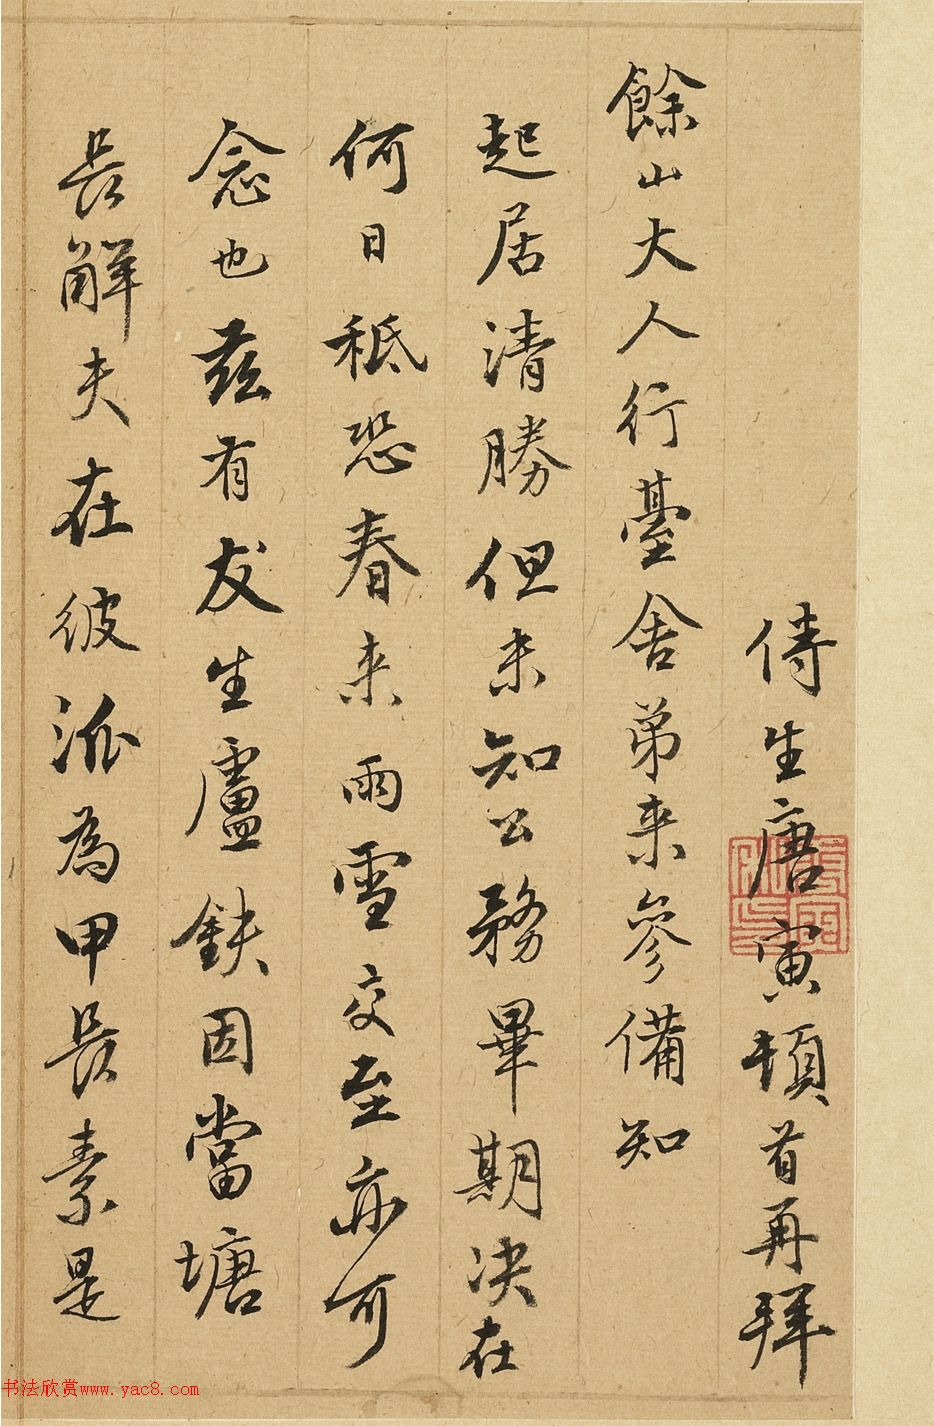 侍生唐寅頓首再拜
餘山大人行臺舍弟来參備知
起居清勝但未知公務畢期决在
何日秪恐春来雨雪交至亦可
念也兹有友生盧鈇因當塘
長解夫在彼派為甲長素是
书法欣赏www.yac8.com